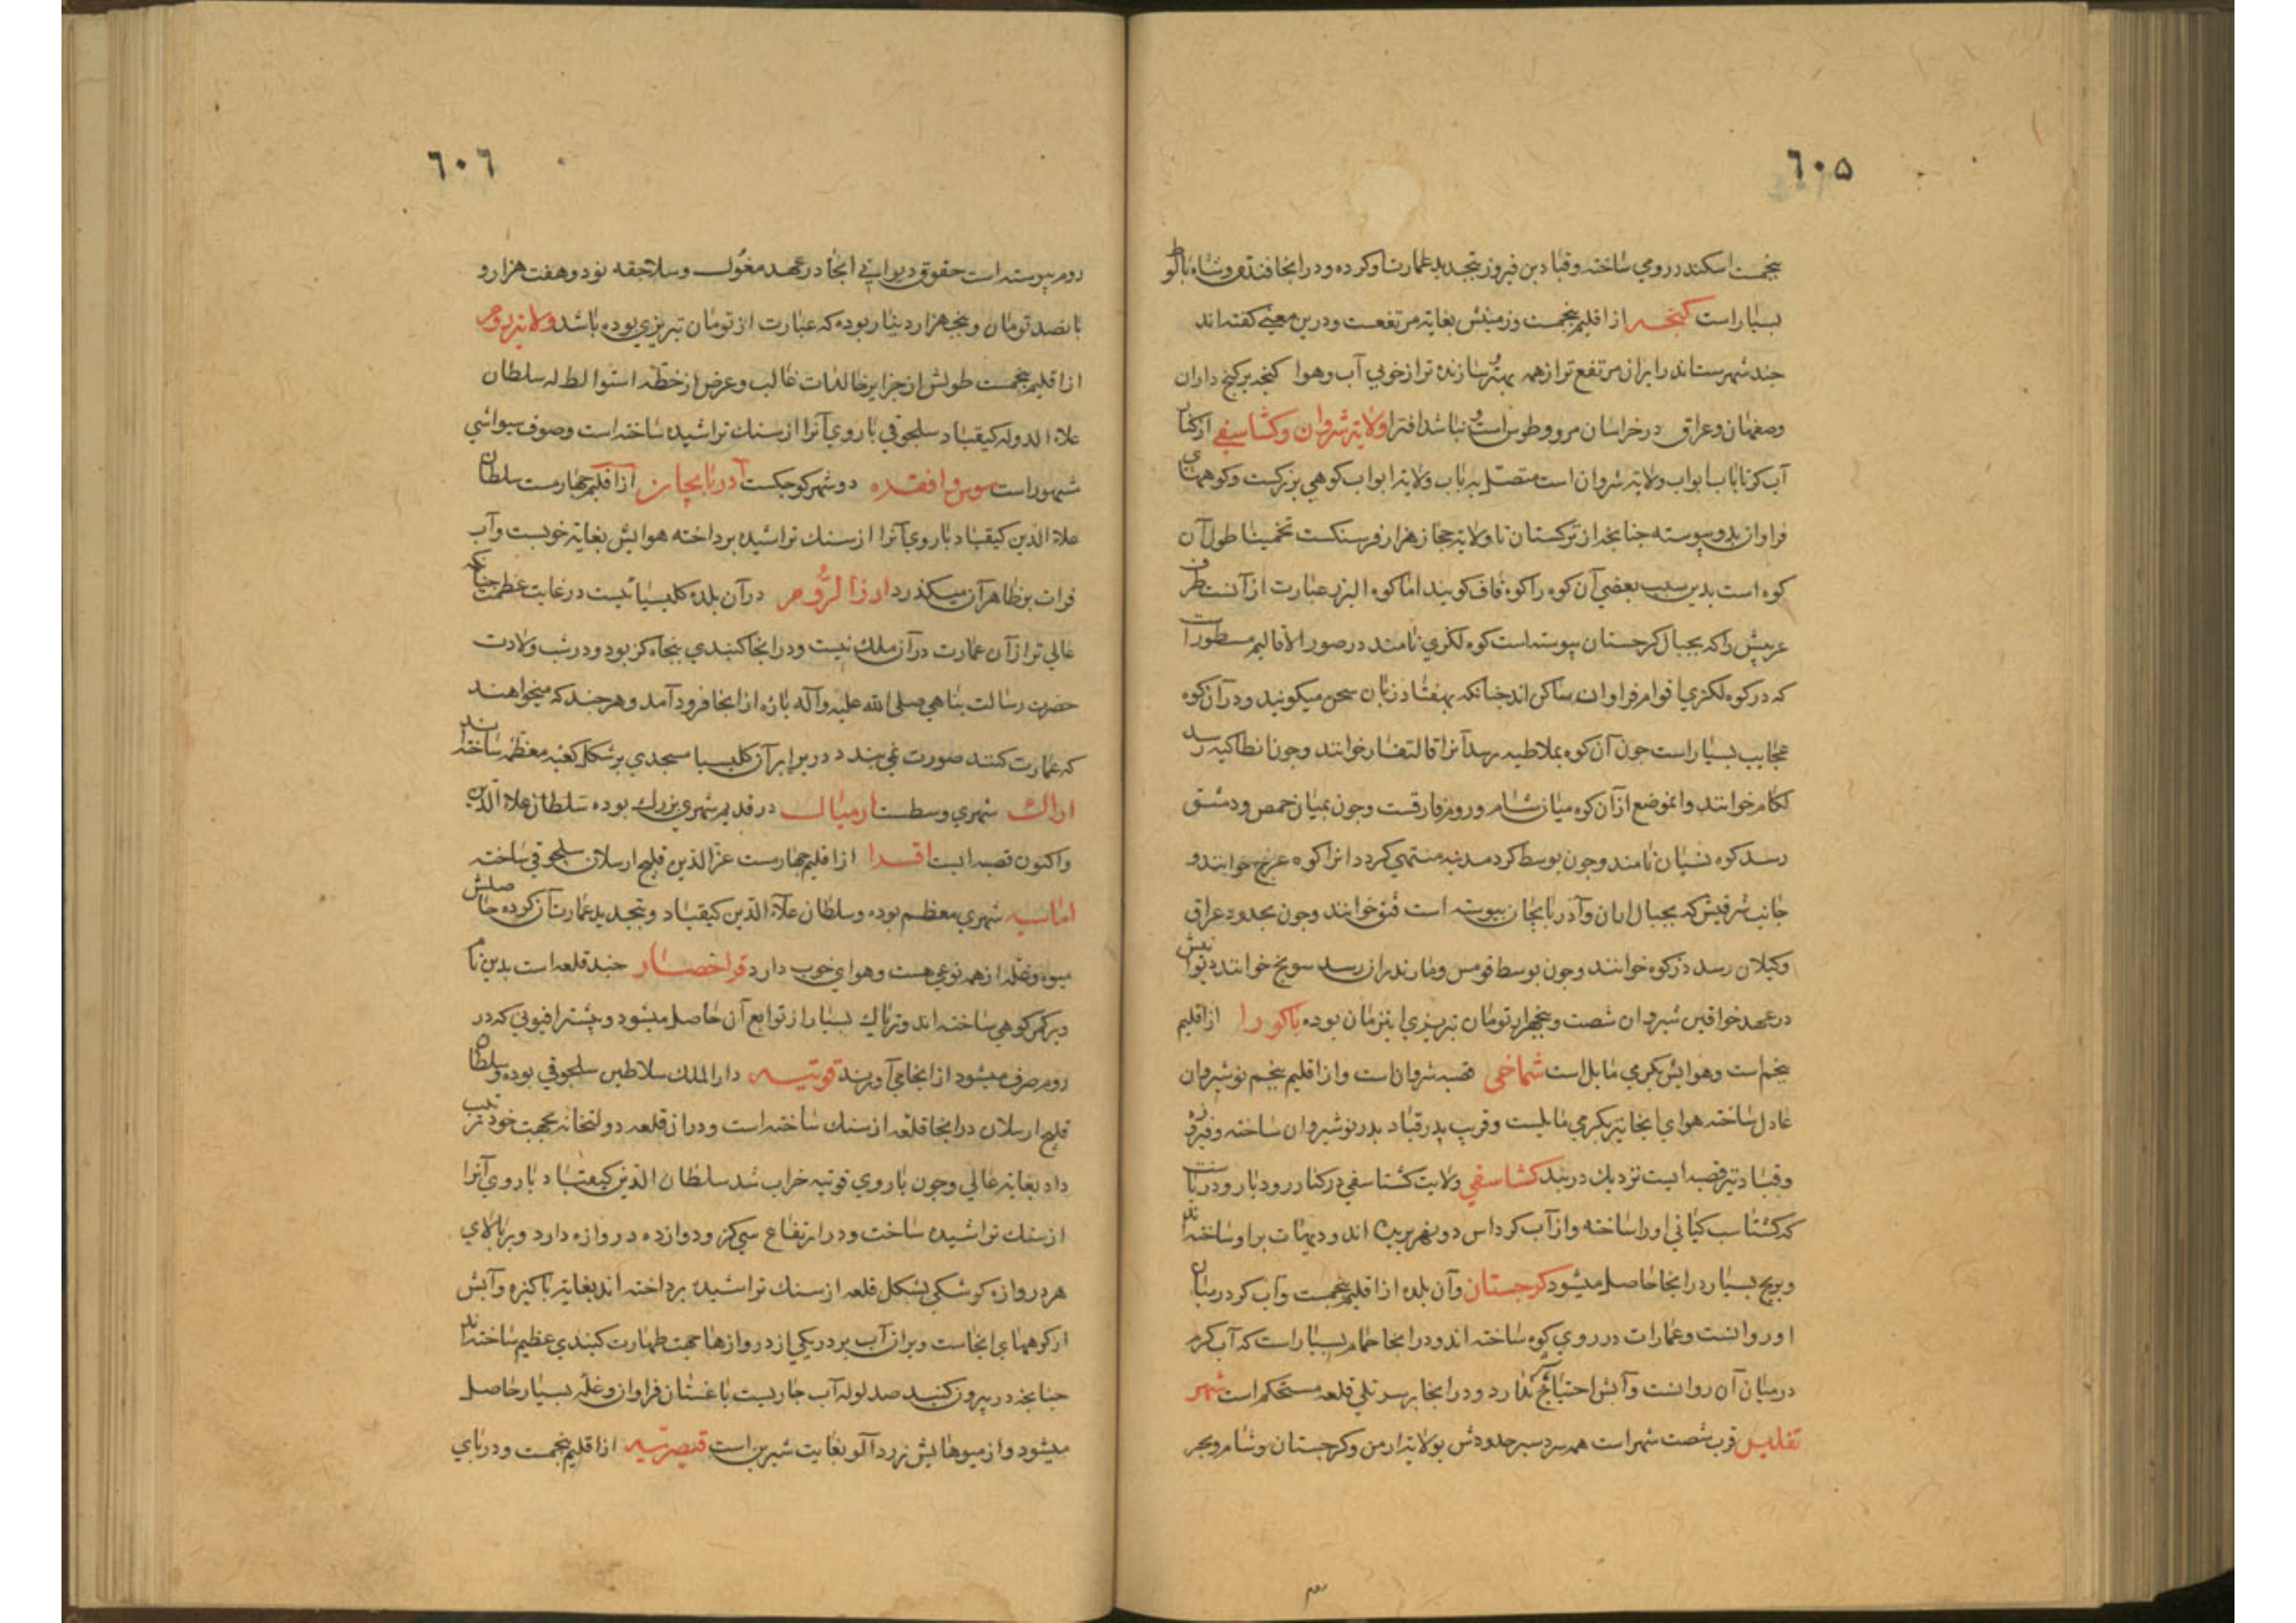 ٦٠٥
پنجمست اسکندر رومی ساخته وقباد بن فیروز بتجدید عمارت او کرده ودر آنجا فندق وشاه بلوط
بسیار است کنجه از اقلیم پنجمست وزمینش بغایة مرتفعست ودرین معنی گفته اند
چند شهرستاند در ایران مرتفع تر از همه بهتر وسازنده تر از خوبی آب وهوا کنجه پر کنج در اران
وصفهان وعراق در خراسان مرو وطوس است ونباشد اقترا ولایة شروان وکشتاسفی از کنار
آب کر تا باب ابواب ولایة شروان است متصل بر باب ولایة ابواب کوهی بزرکست وکوههای
فراوان بدو پیوسته چنانچه از ترکستان تا ولایة حجاز هزار فرسنکست تخمینا طول آن
کوه است بدین سبب بعضی آن کوه را کوه قاف کویند اما کوه البرز عبارت از آنست طرف
غربیش را که بجبال کرجستان پیوسته است کوه لکزی نامند در صور الاقالیم مسطور است
که در کوه لکزی اقوام فراوان ساکن اند چنانکه بهفتاد زبان سخن میکویند ودر آن کوه
عجایب بسیار است چون آن کوه بملاطیه رسد آنرا قالتفار خوانند وچون انطاکیه رسد
لکام خوانند وانموضع از آن کوه میان شام وروم فارقست وچون بمیان حمص ودمشق
رسد کوه لبنان نامند وچون بوسط کرد مدینه منتهی کردد انرا کوه عرج خوانند و
جانب شرقیش که بجبال اران وآذربایجان پیوسته است قبق خوانند وچون بحدود عراق
وکیلان رسد در کوه خوانند وچون بوسط قومس ومازندران رسد سونج خوانند دیوانیش
در عهد خواقین شیروان شصت وپنجهزار تومان تبریزی اینزمان بوده باکورا از اقلیم
پنجم است وهوایش بکرمی مایل است شماخی قصبه شروان است واز اقلیم پنجم نوشیروان
عادل ساخته هوای انجا نیز بکرمی مایلست وقریب پدر قباد پدر نوشیروان ساخته وفیروزه
وقباد نیز قصبه ایست نزدیک دربند کشتاسفی ولایت کشتاسفی در کنار رود بار ودریاست
که کشتاسب کیانی او را ساخته واز آب کر داس دو نهر بریده اند ودیهات بر او ساخته اند
وبرنج بسیار در انجا حاصل میشود کرجستان وآن بلده از اقلیم پنجمست وآب کر در میان
او روانست وعمارات در روی کوه ساخته اند ودر انجا حمام بسیار است که آب کرم
در میان آن روانست وآتش احتیاج ندارد ودر انجا بر سر تلی قلعه مستحکم است شهر
تفلیس قرب شصت شهر است همه سردسیر حدودش بولایة ارمن وکرجستان وشام وبحر
٦٠٦
روم پیوسته است حقوق دیوانی انجا در عهد مغول وسلاجقه نود وهفت هزار و
پانصد تومان وپنج هزار دینار بوده که عبارت از تومان تبریزی بوده باشد ولایة روم
از اقلیم پنجمست طولش از جزایر خالدات غالب وعرض از خطه استوا لط له سلطان
علاء الدوله کیقباد سلجوقی باروی آنرا از سنک تراشیده ساخته است وصوف سیواسی
مشهور است سوس وافقده دو شهر کوچکست آذربایجان از اقلیم چهارمست سلطان
علاء الدین کیقباد باروی آنرا از سنک تراشیده پرداخته هوایش بغایة خوبست وآب
فرات بر ظاهر آن میکذرد ارزالرّوم در آن بلده کلیسیائیست در غایت عظمت چنانکه
عالی تر از آن عمارت در آن ملک نیست ودر انجا کنبدی پنجاه کز بود ودر شب ولادت
حضرت رسالت پناهی صلی الله علیه وآله پاره از انجا فرود آمد وهر چند که میخواهند
که عمارت کنند صورت نمی بندد در برابر آن کلیسیا مسجدی بر شکل کعبه معظمه ساخته اند
اراک شهری وسطست ارمیال در قدیم شهری بزرک بوده سلطان علاء الدین
واکنون قصبه ایست اقسدا از اقلیم چهارمست عز الدین قلیج ارسلان سلجوقی ساخته
اماسیه شهری معظم بوده وسلطان علاء الدین کیقباد وبتجدید عمارت آن کرده حاصلش
میوه وغله از همه نوعی هست وهوای خوب دارد قراحصار چند قلعه است بدین نام
در کمر کوهی ساخته اند وتریاک بسیار از توابع آن حاصل میشود وبیشتر افیونی که در
روم صرف میشود از انجا می آورند قونیه دار الملک سلاطین سلجوقی بوده وسلطان
قلیج ارسلان در انجا قلعه از سنک ساخته است ودر ان قلعه دولتخانه بجهت خود ترتیب
داد بغایة عالی وچون باروی قونیه خراب شد سلطان الدین کیقباد باروی آنرا
از سنک تراشیده ساخت ودر ارتفاع سی کز ودوازده دروازه دارد وبر بالای
هر دروازه کوشکی بشکل قلعه از سنک تراشیده پرداخته اند بغایة پاکیزه وآبش
از کوههای انجاست وبر ان آب بر در یکی از دروازها جهت طهارت کنبدی عظیم ساخته اند
چنانچه در بیرون کنبد صد لوله آب جاریست باغستان فراوان وغله بسیار حاصل
میشود واز میوهایش زرد آلو بغایت شیرین است قیصریّه از اقلیم پنجمست ودر پای